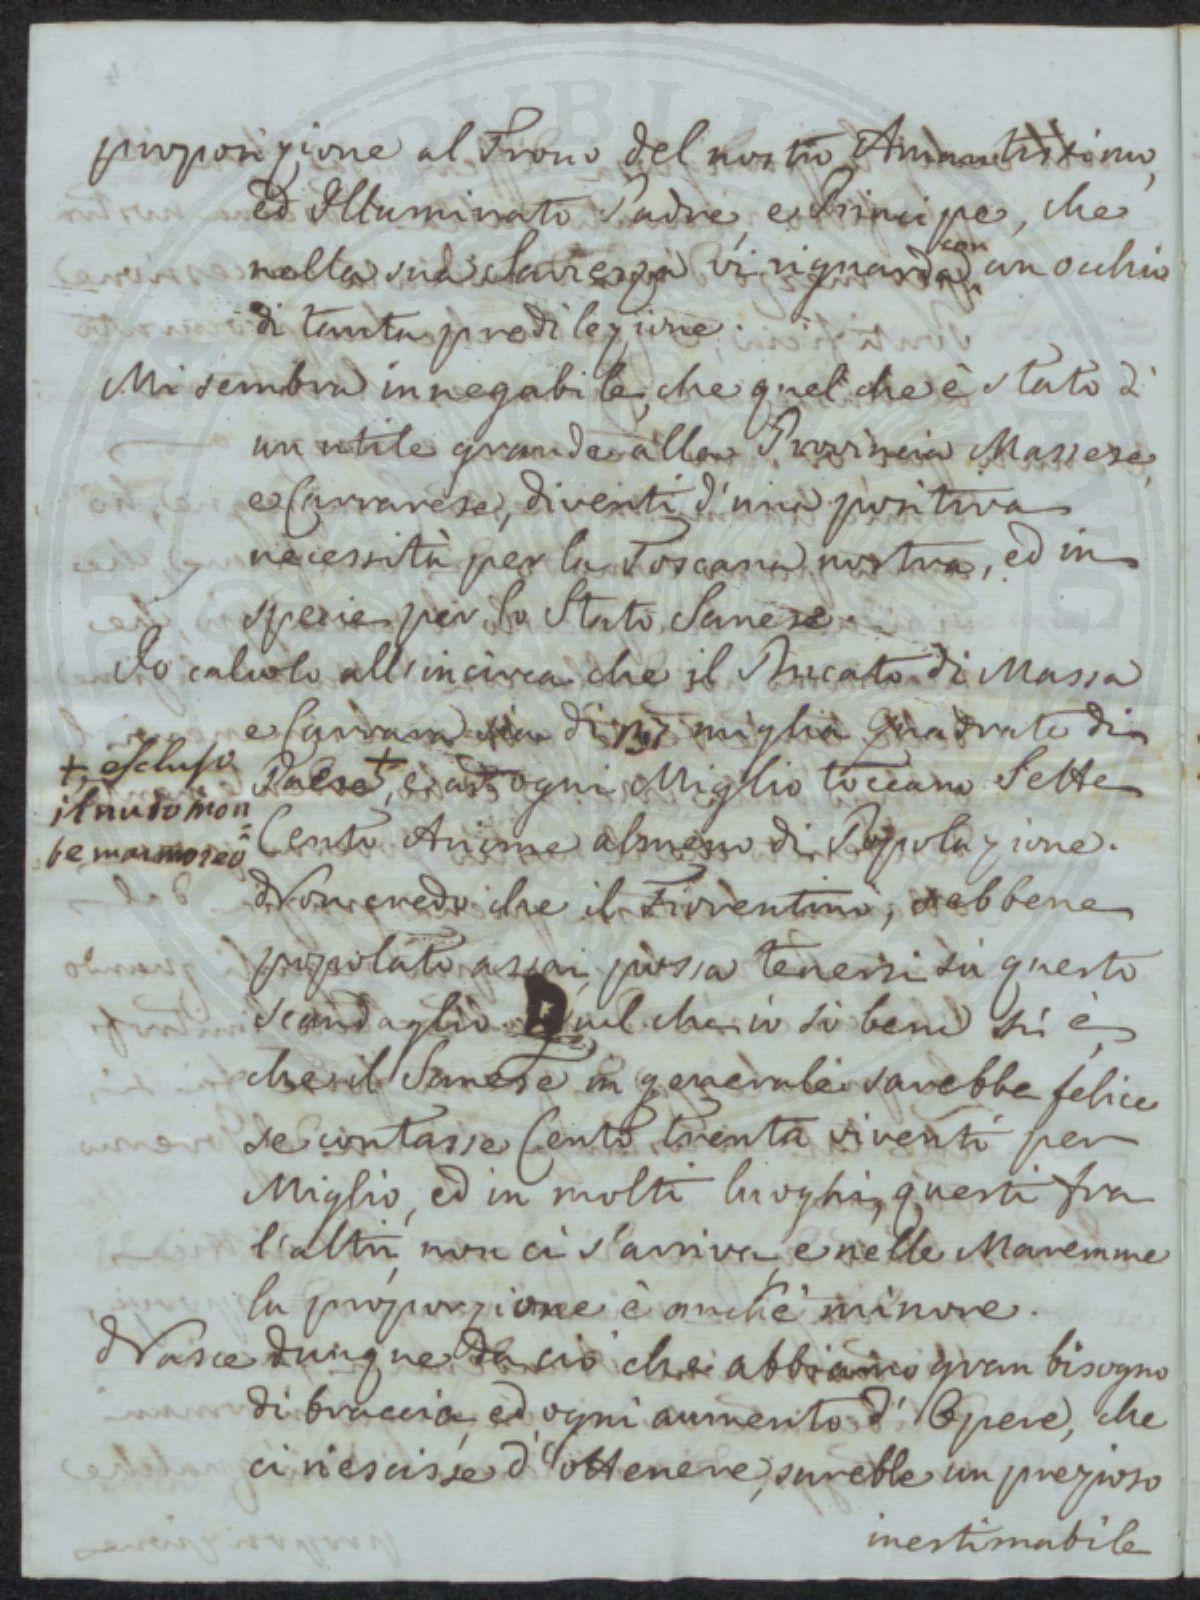 proposizione al Trono del nostro Amantissimo,
ed Illuminato Padre, e Principe, che
nella sua Saviezza vi riguarda con un occhio
di tanta predilezione.
Mi sembra innegabile, che quel che è stato d'
un utile grande alla Provincia Massese,
e Carrarese, diventi d'una positiva
necessità per la Toscana nostra, ed in
specie per lo Stato Sanese.
Io calcolo all'incirca che il Ducato di Massa
e Carrara sia di miglia quadrate di
Paese +, e ad ogni Miglio toccano Sette
+ escluso
il nudo mon
te marmoreo
Cento Anime almeno di Popolazione.
Non credo che il Fiorentino, sebbene
popolato assai, possa tenersi sù questo
scandaglio. Quel che io sò bene si è,
che il Sanese in generale sarebbe felice
se contasse Cento trenta viventi per
Miglio, ed in molti luoghi, questi fra
l'altri, non ci s'arriva, e nelle Maremme
la proporzione è anche minore.
Nasce dunque da ciò che abbiamo gran bisogno
di braccia, ed ogni aumento d'Opere, che
ci riescisse d'ottenere, sarebbe un prezioso
inestimabile